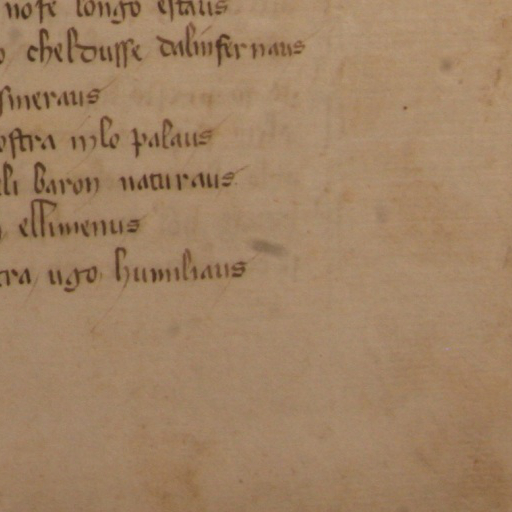 nose longo estaus
cheldusse dalinfernaus
smeraus
ostra inlo palaus
li baron naturaus
ellimenus
tra ugo humiliaus